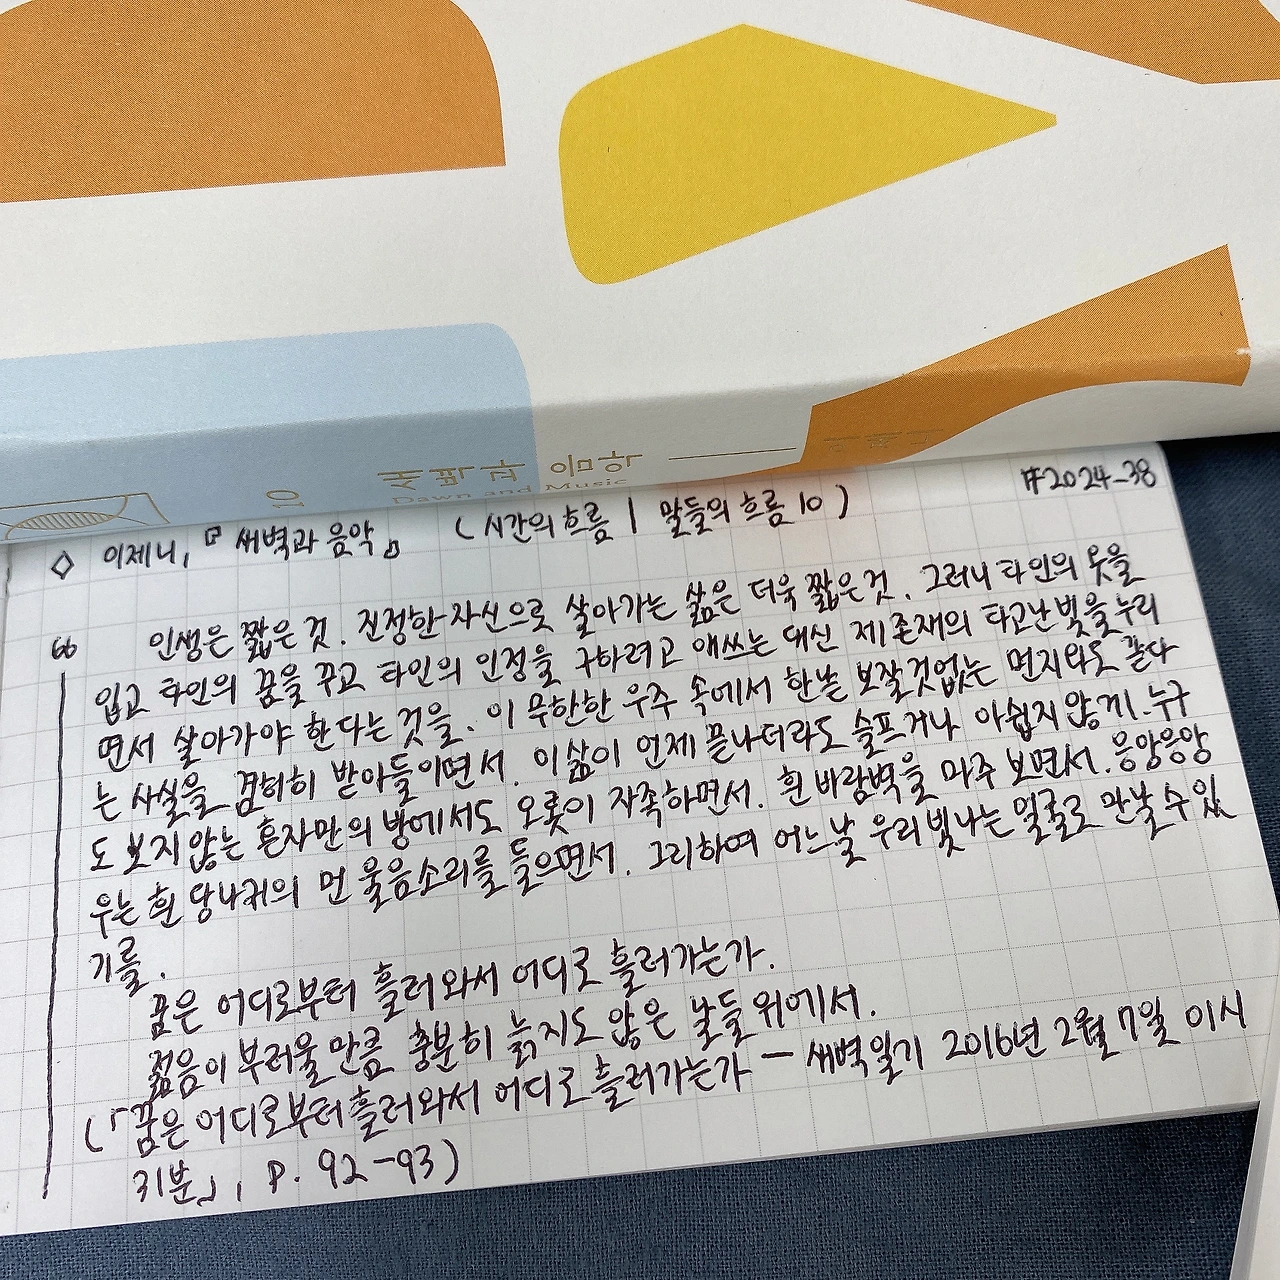 새벽과 음악
Dawn and Music
10
#2024-38
◇ 이제니, 『새벽과 음악』 (시간의흐름 | 말들의 흐름 10)
66 인생은 짧은 것. 진정한 자신으로 살아가는 삶은 더욱 짧은 것. 그러니 타인의 옷을
입고 타인의 꿈을 꾸고 타인의 인정을 구하려고 애쓰는 대신 제 존재의 타고난 빛을 누리
면서 살아가야 한다는 것을. 이 무한한 우주 속에서 한낱 보잘것없는 먼지와도 같다
는 사실을 겸허히 받아들이면서. 이 삶이 언제 끝나더라도 슬프거나 아쉽지 않게. 누구
도 보지 않는 혼자만의 방에서도 오롯이 자족하면서. 흰 바람벽을 마주 보면서. 응앙응앙
우는 흰 당나귀의 먼 울음소리를 들으면서. 그리하여 어느날 우리 빛나는 얼굴로 만날 수 있
기를.
꿈은 어디로부터 흘러와서 어디로 흘러가는가.
젊음이 부러울 만큼 충분히 늙지도 않은 날들 위에서.
(「꿈은 어디로부터 흘러와서 어디로 흘러가는가 — 새벽일기 2016년 2월 7일 0시
키분」, p. 92-93)